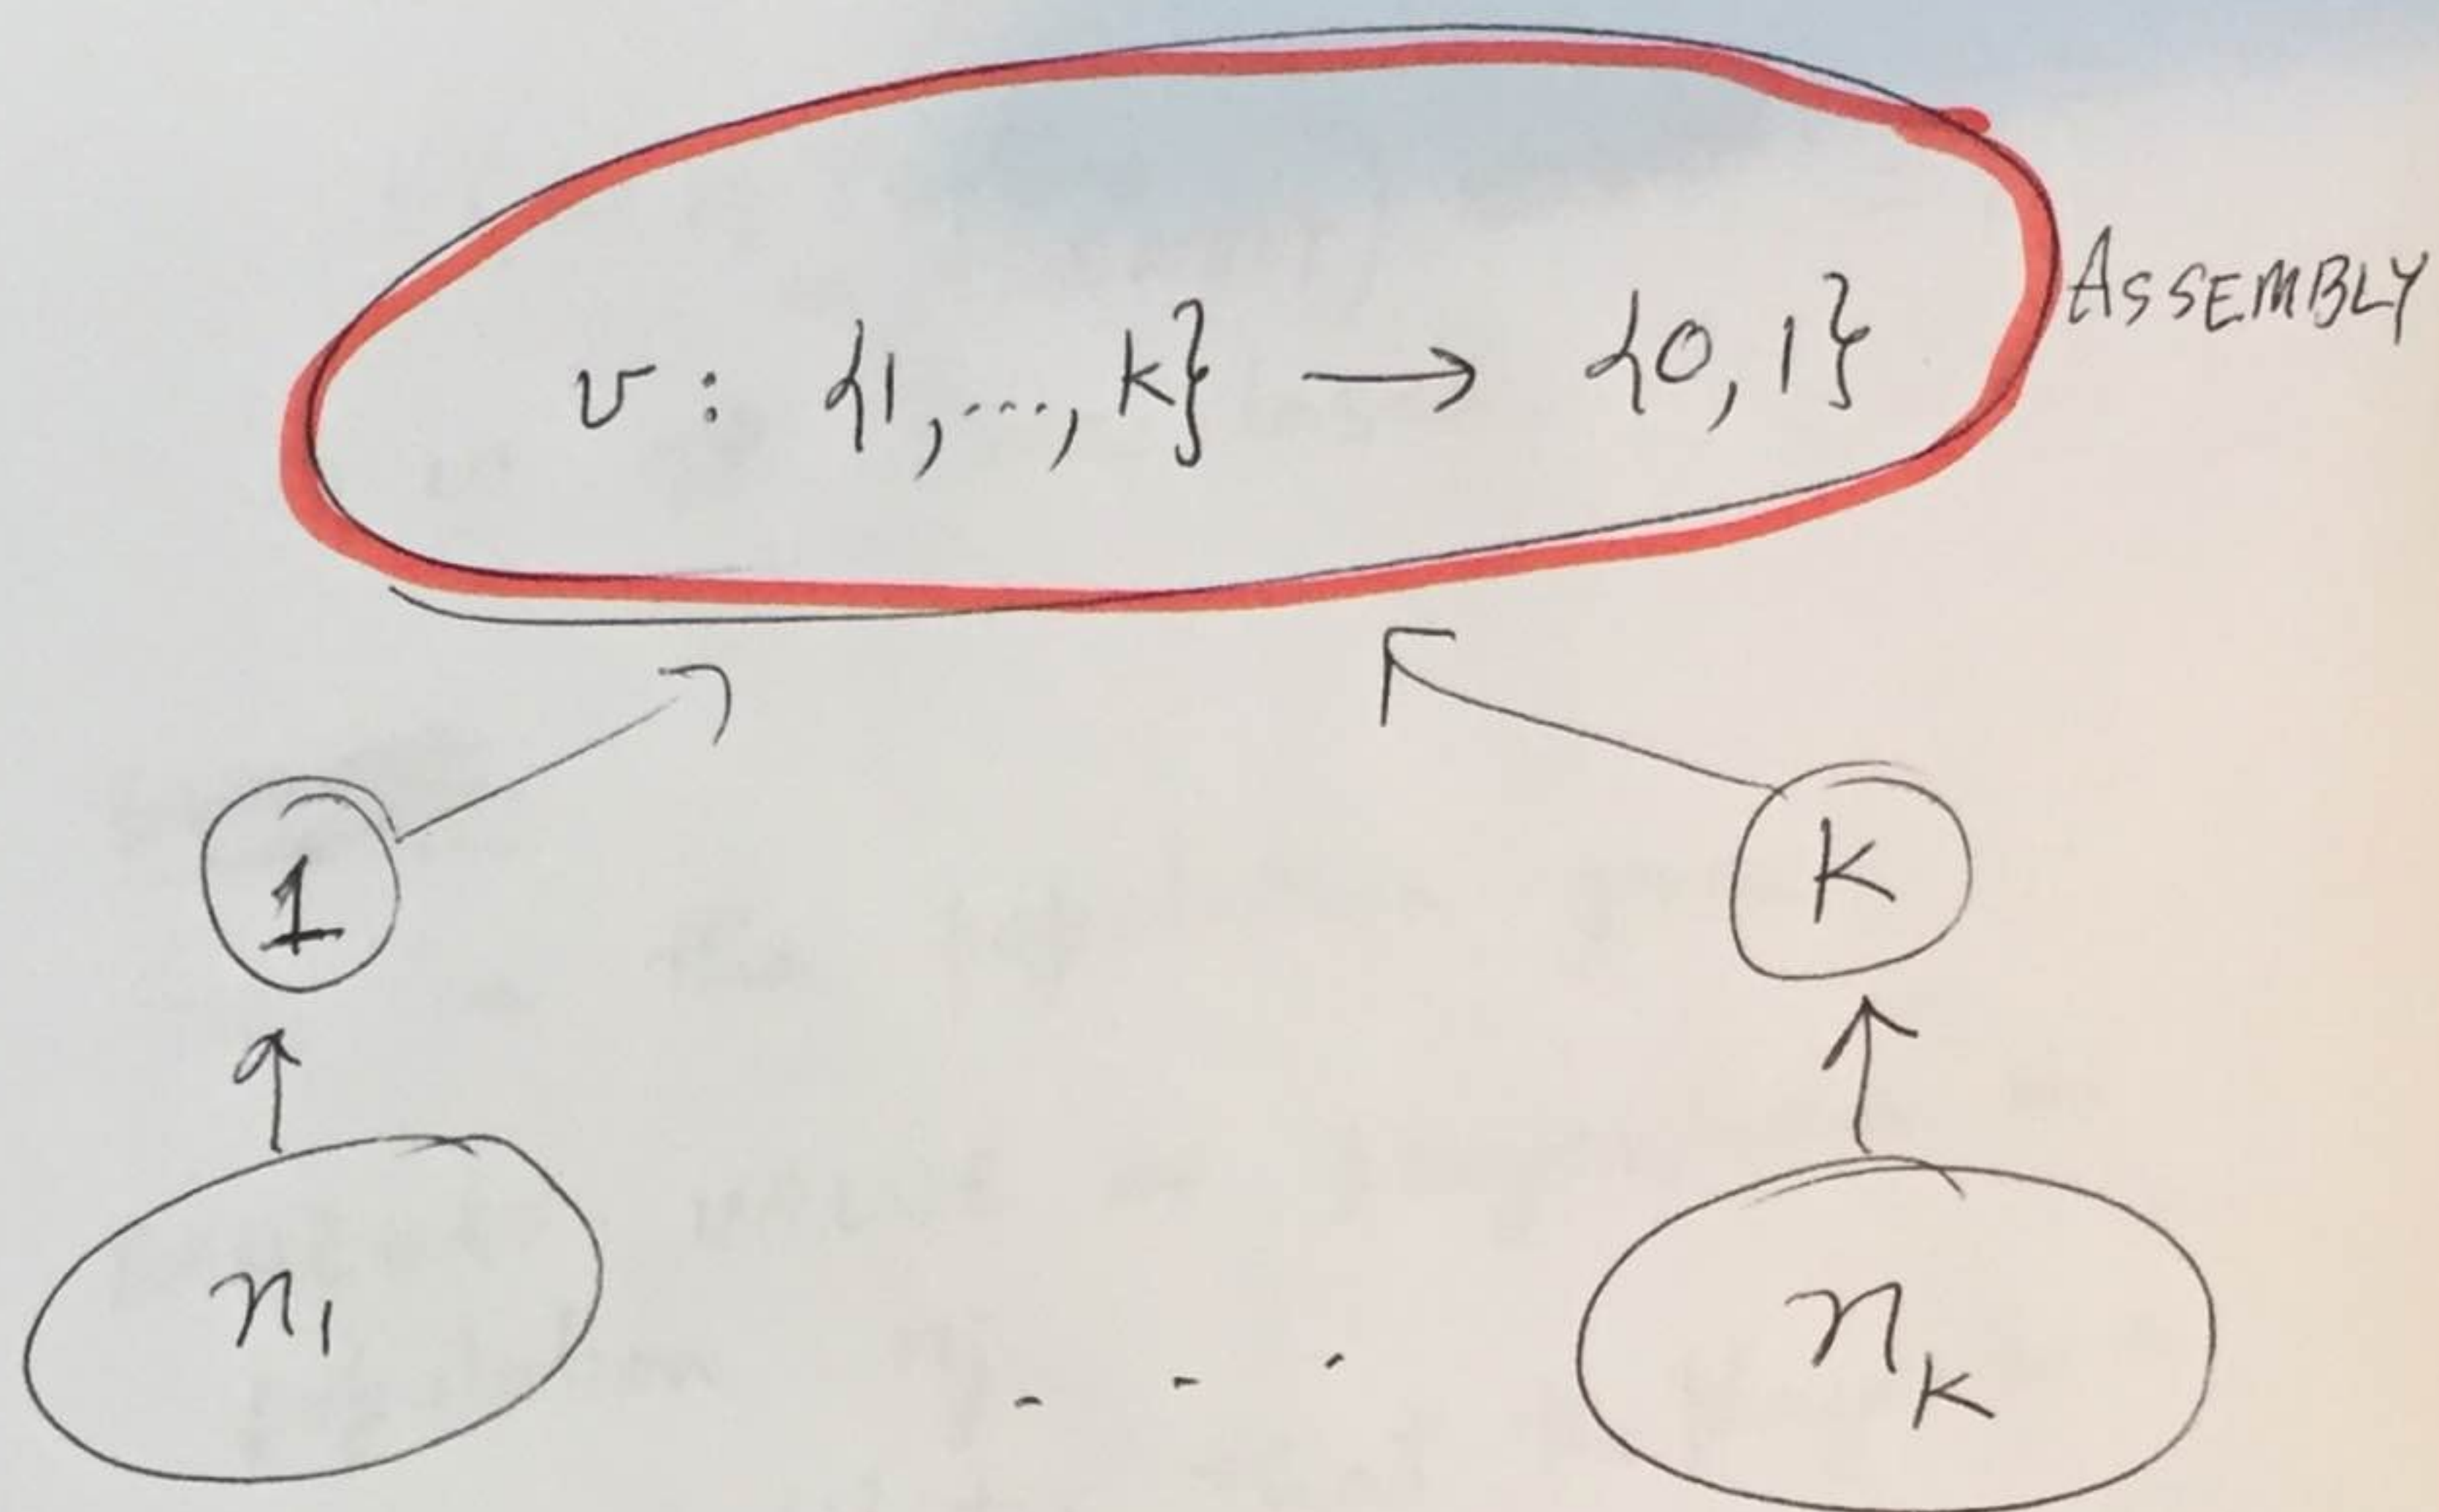 v : {1,...,k} → {0,1}
ASSEMBLY
1
k
n₁
. . .
n_k